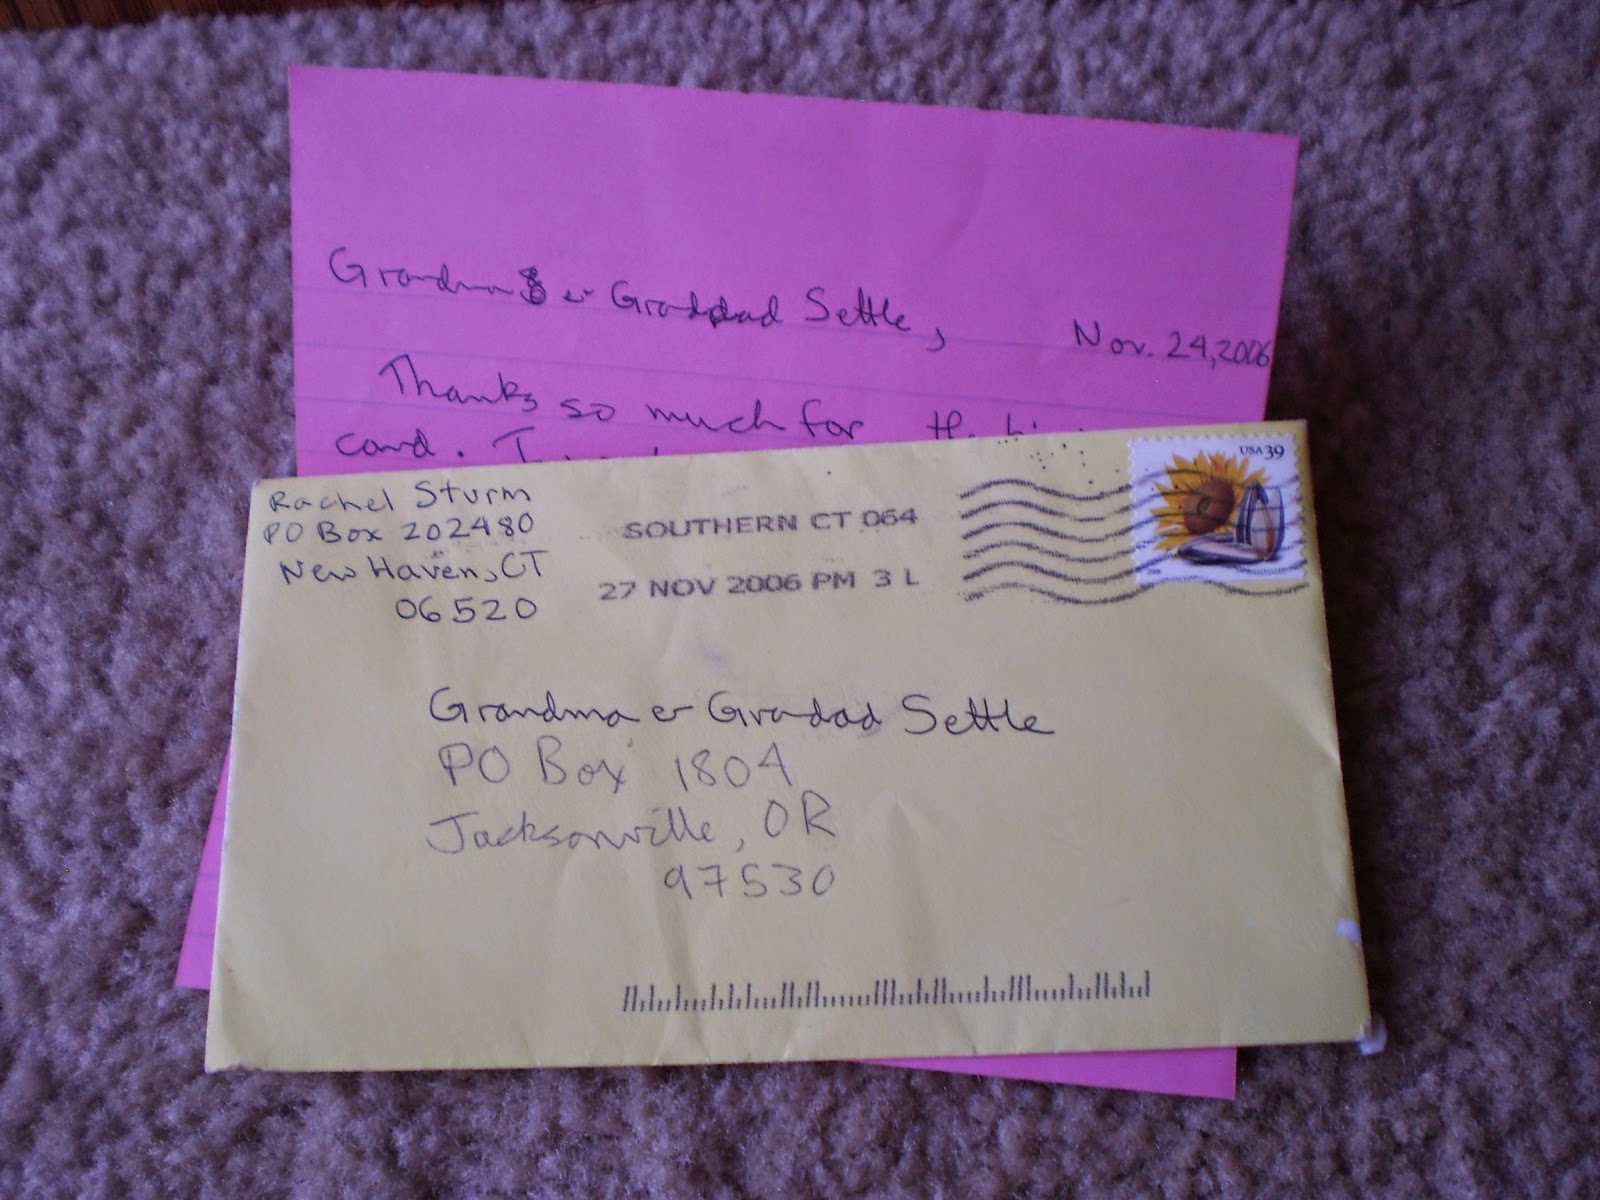 Grandma & Granddad Settle,
Nov. 24, 2006
Thanks so much for
card. I
Rachel Sturm
PO Box 202480
New Haven, CT
06520
SOUTHERN CT 064
27 NOV 2006 PM 3 L
USA 39
Grandma & Gradad Settle
PO Box 1804
Jacksonville, OR
97530